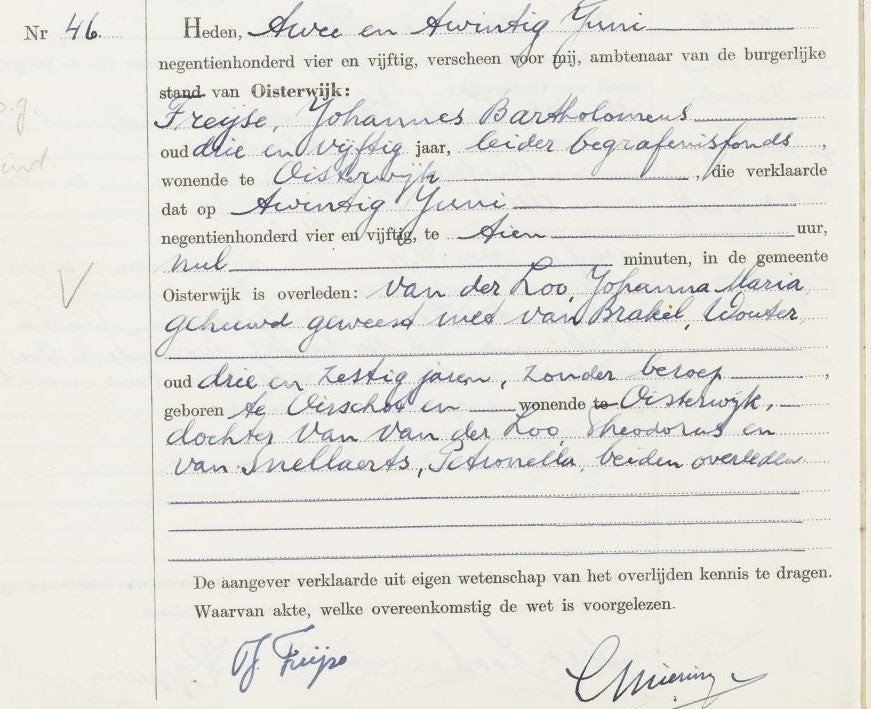 Nr 46.
Heden, twee en twintig Juni
negentienhonderd vier en vijftig, verscheen voor mij, ambtenaar van de burgerlijke
stand van Oisterwijk:
Freijse, Johannes Bartholomeus
oud drie en vijftig jaar, leider begrafenisfonds,
wonende te Oisterwijk, die verklaarde
dat op twintig Juni
negentienhonderd vier en vijftig, te tien uur,
nul minuten, in de gemeente
Oisterwijk is overleden: van der Loo, Johanna Maria,
gehuwd geweest met van Brakel, Wouter,
oud drie en zestig jaren, zonder beroep,
geboren te Oirschot en wonende te Oisterwijk,
dochter van van der Loo, Theodorus en
van Snellaerts, Petronella, beiden overleden
De aangever verklaarde uit eigen wetenschap van het overlijden kennis te dragen.
Waarvan akte, welke overeenkomstig de wet is voorgelezen.
Freijse